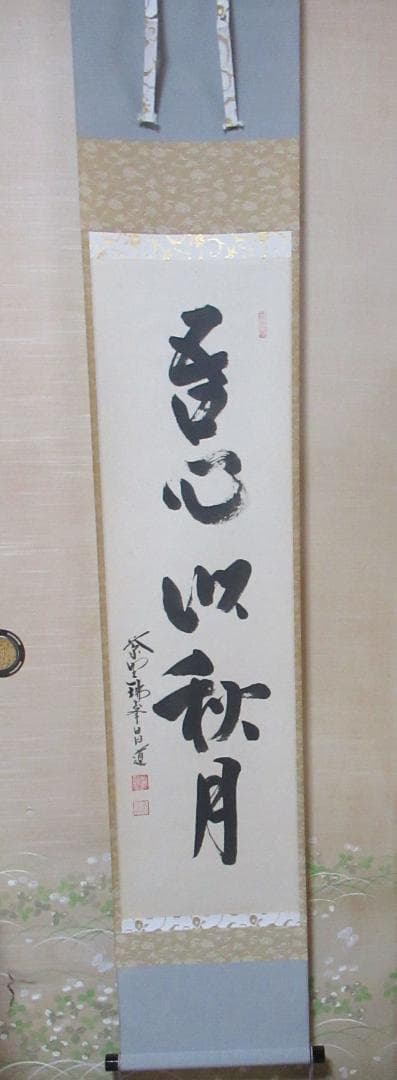 吾心似秋月
紫野瑞峯昌道